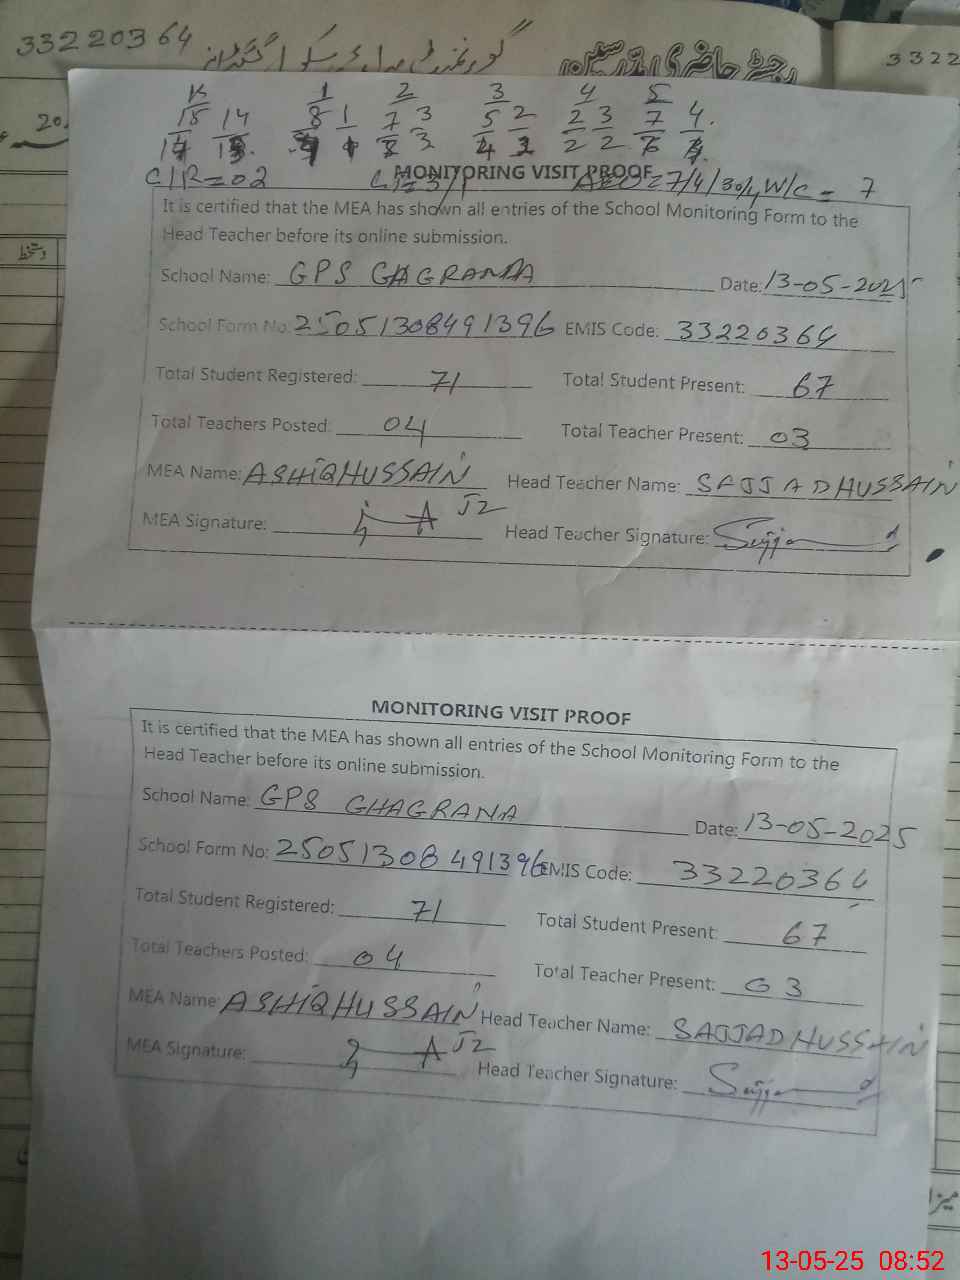 33220364
3322
20
K 1 2 3 4 5
18 14 8 1 7 3 5 2 2 3 7 4.
C/R=02 7/4/30/4, W/C = 7
MONITORING VISIT PROOF
It is certified that the MEA has shown all entries of the School Monitoring Form to the
Head Teacher before its online submission.
School Name: GPS GHAGRANA Date: 13-05-2025
School Form No: 25051308491396 EMIS Code: 33220364
Total Student Registered: 71 Total Student Present: 67
Total Teachers Posted: 04 Total Teacher Present: 03
MEA Name: ASHIQ HUSSAIN Head Teacher Name: SAJJAD HUSSAIN
MEA Signature: Head Teacher Signature:
MONITORING VISIT PROOF
It is certified that the MEA has shown all entries of the School Monitoring Form to the
Head Teacher before its online submission.
School Name: GPS GHAGRANA Date: 13-05-2025
School Form No: 25051308491396 EMIS Code: 33220364
Total Student Registered: 71 Total Student Present: 67
Total Teachers Posted: 04 Total Teacher Present: 03
MEA Name: ASHIQ HUSSAIN Head Teacher Name: SAJJAD HUSSAIN
MEA Signature: Head Teacher Signature:
13-05-25 08:52